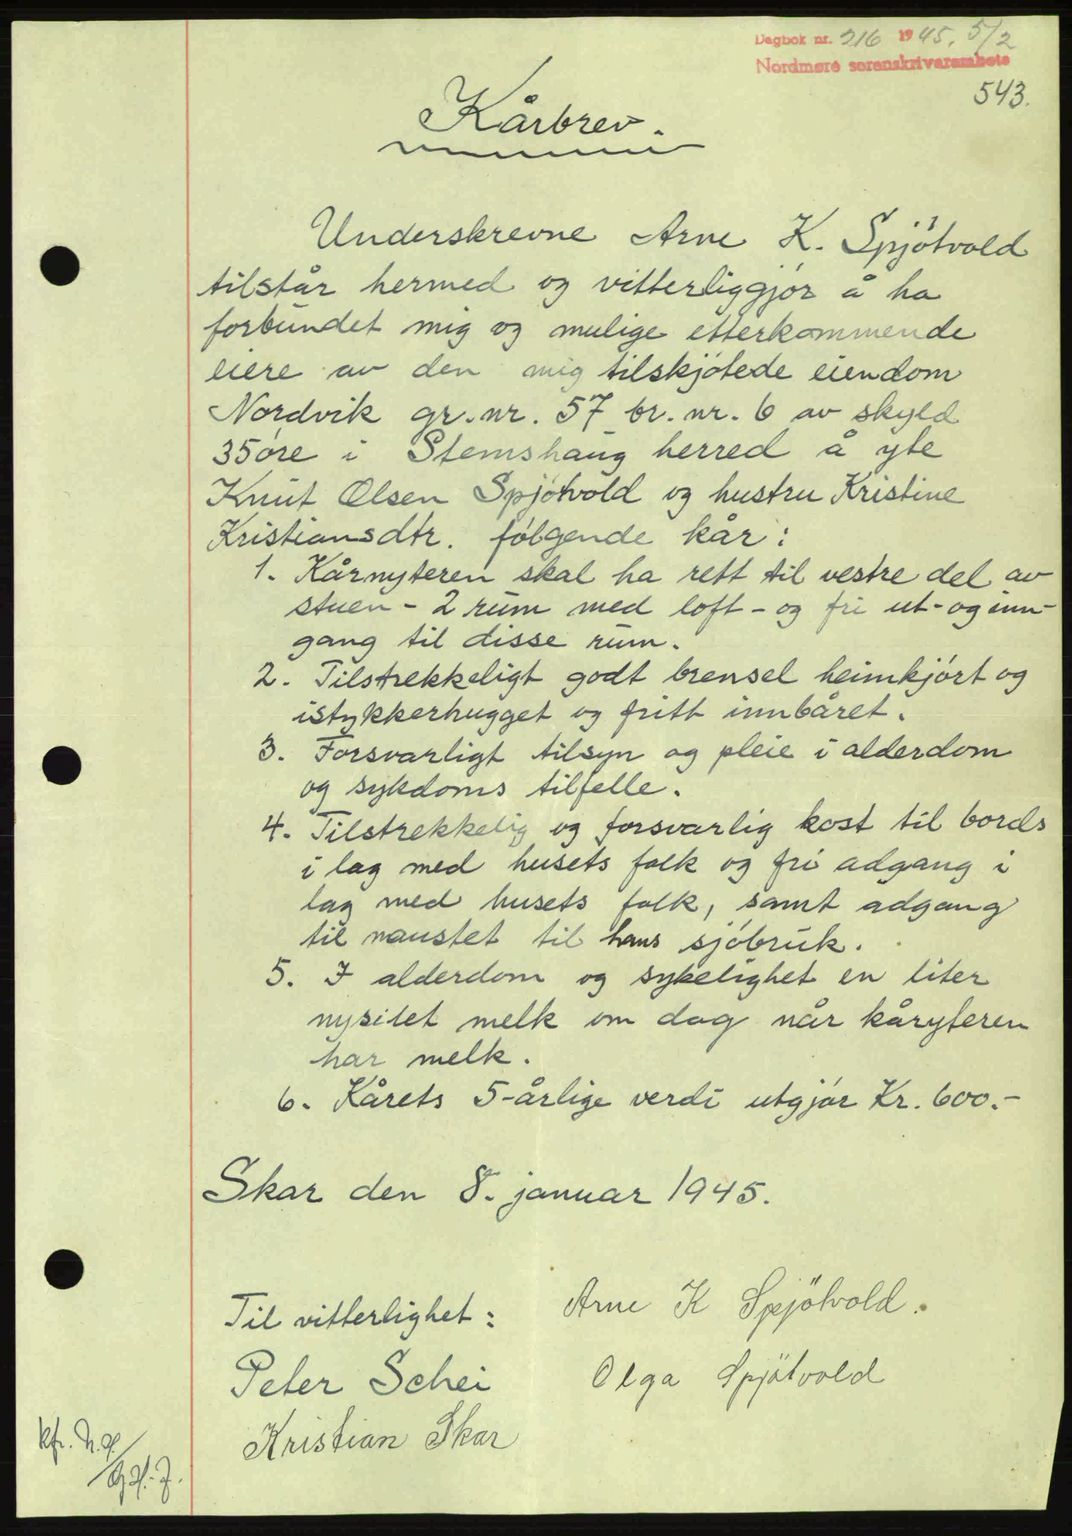 Dagbok nr. 216 1945. 5/2
Nordmøre sorenskrivarembete
543.
Kårbrev.
Underskrevne Arne K. Spjøtvold
tilstår hermed og vitterliggjør å ha
forbundet mig og mulige etterkommende
eiere av den mig tilskjøtede eiendom
Nordvik gr. nr. 57 br. nr. 6 av skyld
35 øre i Stemshaug herred å yte
Knut Olsen Spjøtvold og hustru Kristine
Kristiansdtr. følgende kår:
1. Kårnyteren skal ha rett til vestre del av
stuen - 2 rum med loft - og fri ut- og inn-
gang til disse rum.
2. Tilstrekkeligt godt brensel heimkjørt og
istykkerhugget og fritt innbåret.
3. Forsvarligt tilsyn og pleie i alderdom
og sykdoms tilfelle.
4. Tilstrekkelig og forsvarlig kost til bords
i lag med husets folk og fri adgang i
lag med husets folk, samt adgang
til naustet til hans sjøbruk.
5. I alderdom og sykelighet en liter
nysilet melk om dag når kåryteren
har melk.
6. Kårets 5-årlige verdi utgjør Kr. 600.-
Skar den 8. januar 1945.
Til vitterlighet:
Arne K Spjøtvold.
Peter Schei
Olga Spjøtvold
Kristian Skar
kfr.